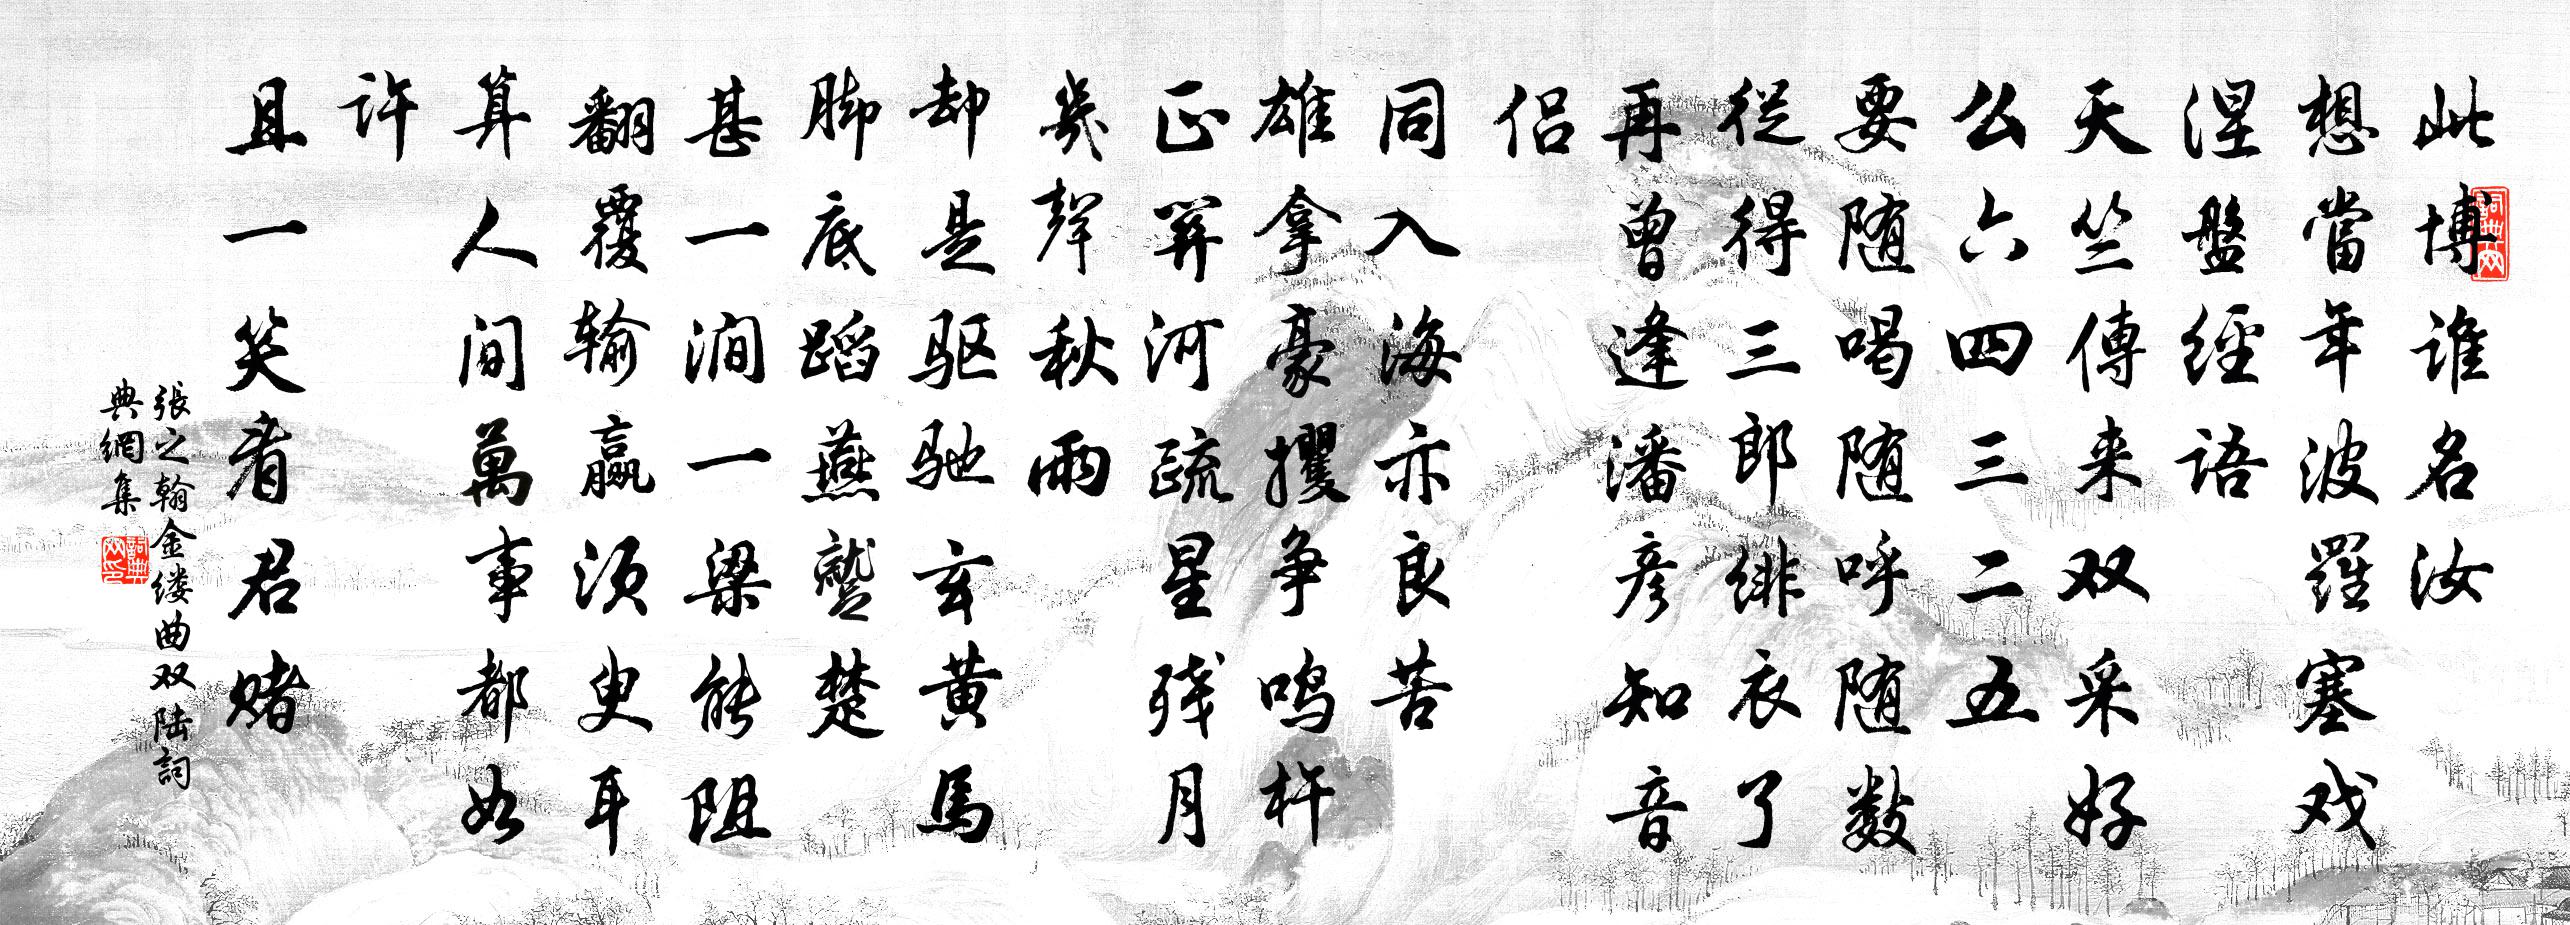 此博谁名汝
想當年波羅塞戏
涅盤經语
天竺傳来双采好
么六四三二五
要随喝随呼随数
從得三郎绯衣了
再曾逢潘彦知音
侣
同入海亦良苦
雄拿豪攫争鸣杵
正羿河疏星残月
幾聲秋雨
却是驱驰玄黄馬
脚底蹈燕蹵楚
甚一涧一梁能阻
翻覆输赢须臾耳
算人间萬事都如
许
且一笑看君赌
張之翰金缕曲双陆詞
典網集